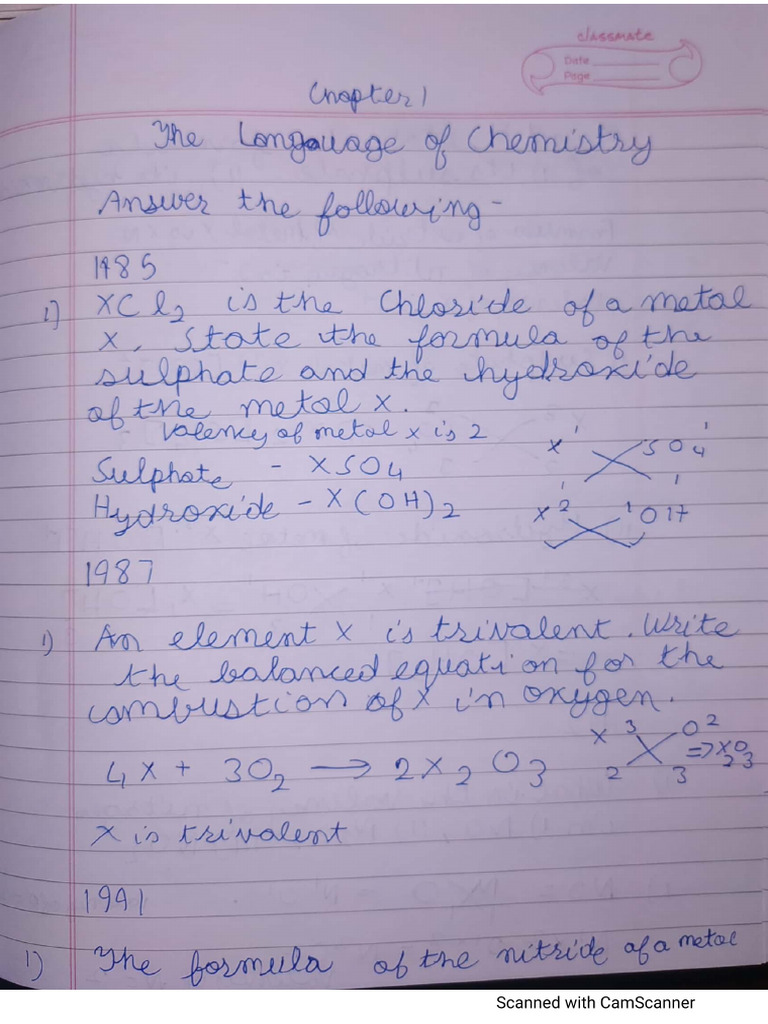 classmate
Date
Page
Chapter 1
The Langauage of Chemistry
Answer the following -
1985
1) XCl2 is the Chloride of a metal
X. State the formula of the
sulphate and the hydroxide
of the metal X.
Valency of metal X is 2
Sulphate - XSO4
X 1 SO4 1
1 1
Hydroxide - X(OH)2
X 2 1 OH
1987
1) An element X is trivalent. Write
the balanced equation for the
combustion of X in oxygen.
4X + 3O2 → 2X2O3
X 3 O 2
2 3 ⇒ X2O3
X is trivalent
1991
1) The formula of the nitride of a metal
Scanned with CamScanner